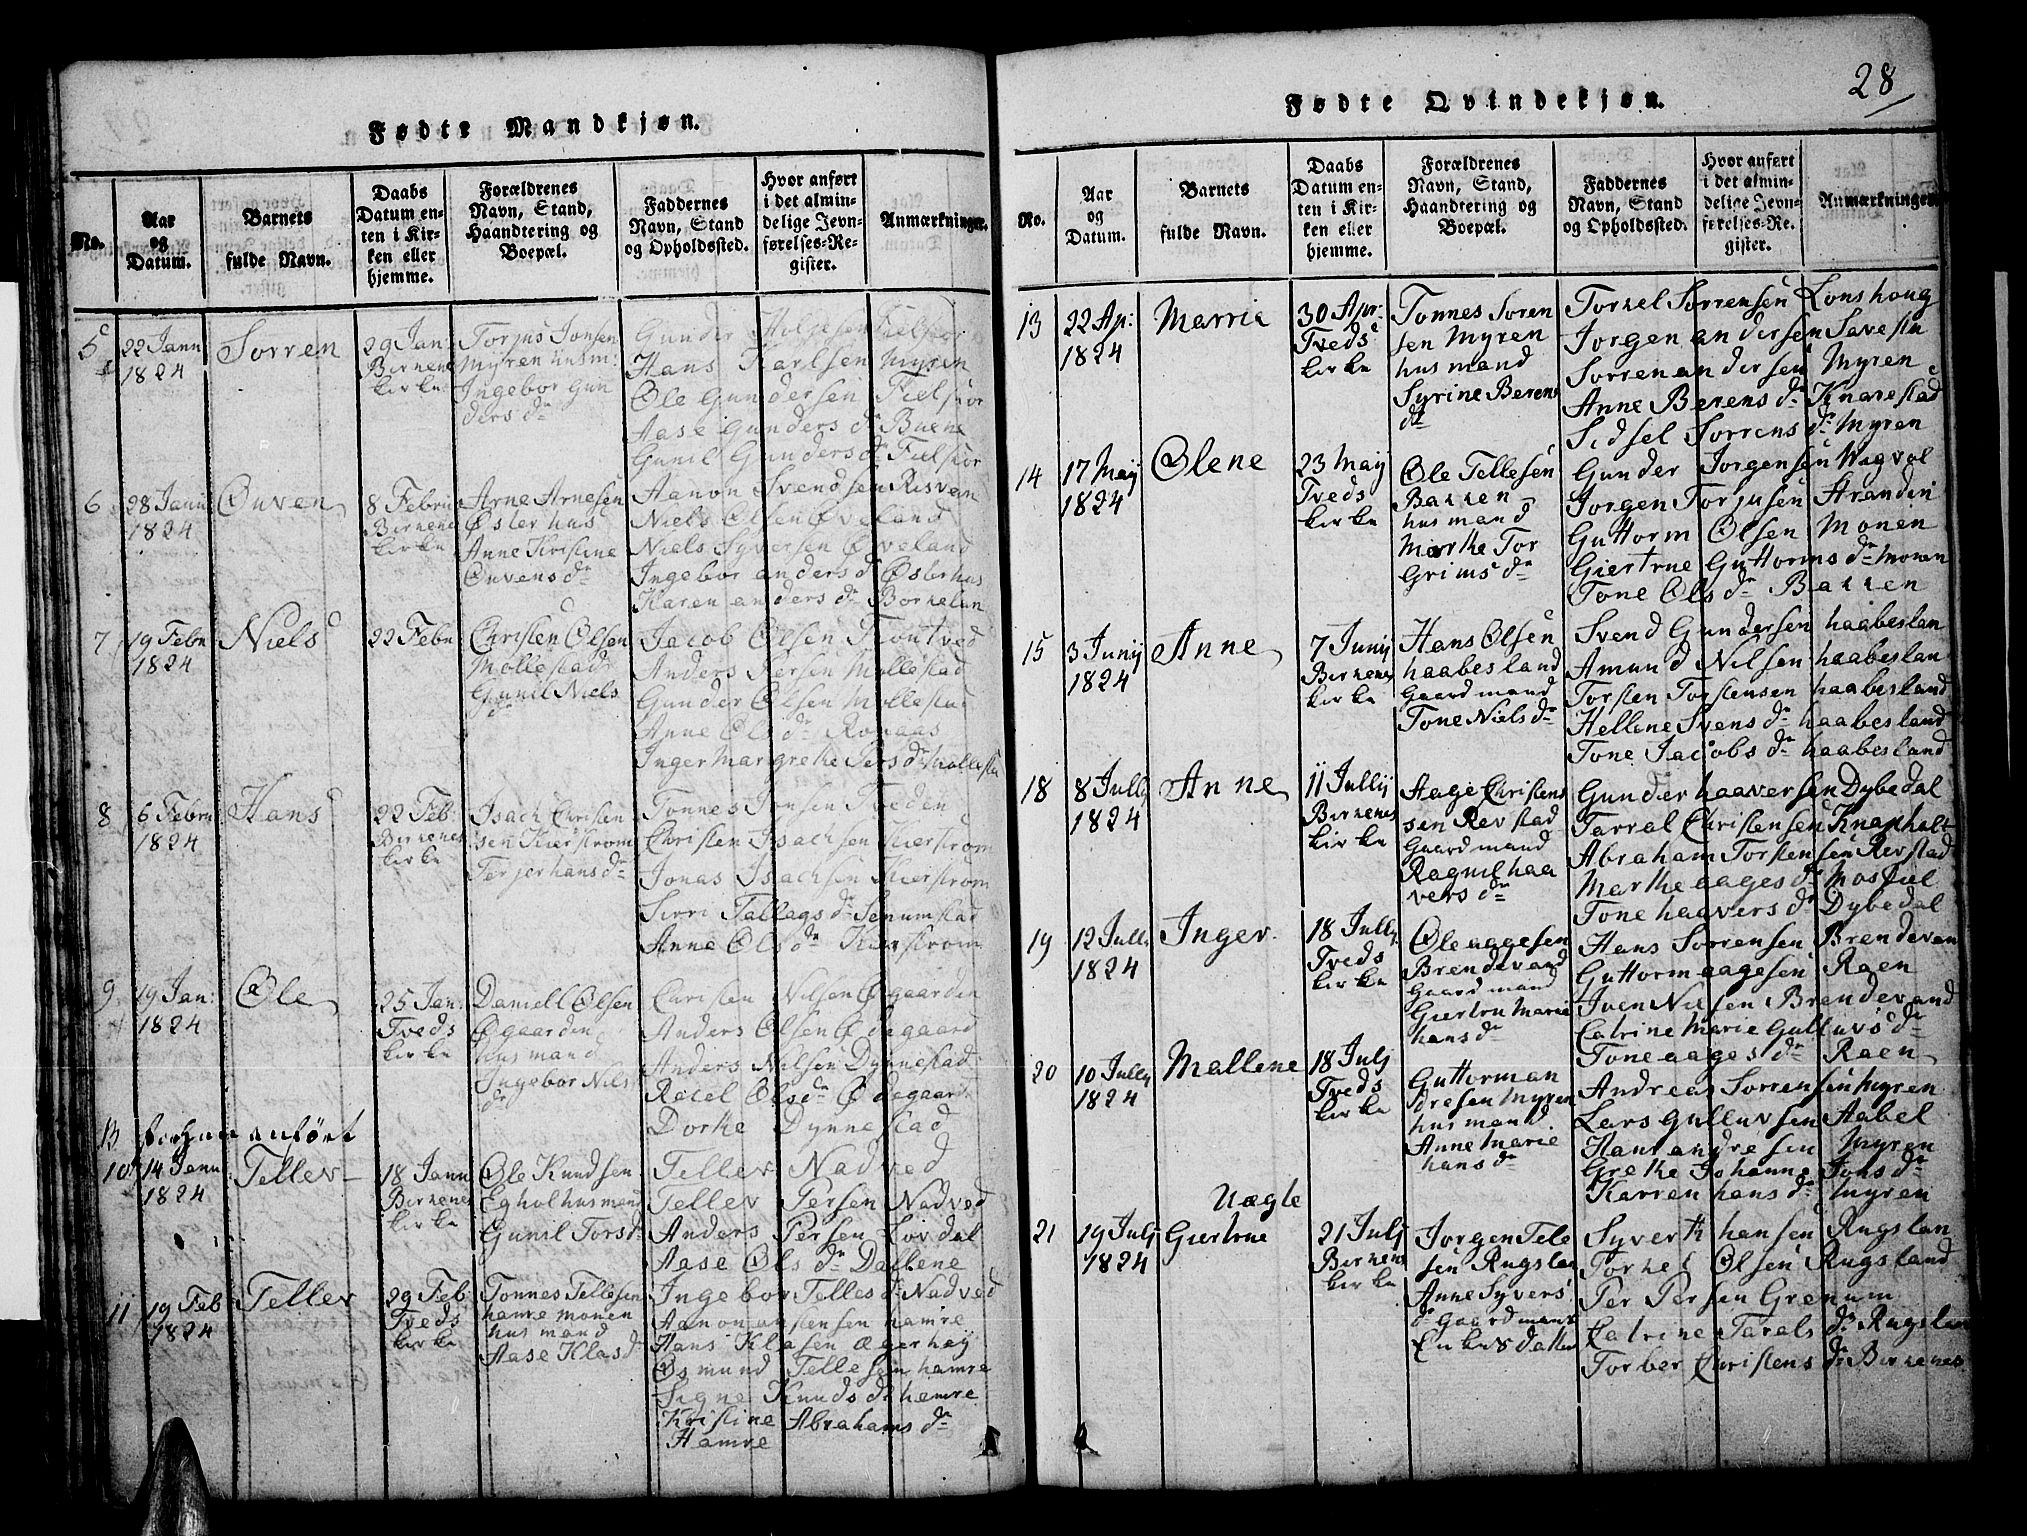 Fødte Mandkjøn.
No.
Aar
og
Datum.
Barnets
fulde Navn.
Daabs
Datum en-
ten i Kir-
ken eller
hjemme.
Forældrenes
Navn, Stand,
Haandtering og
Boepæl.
Faddernes
Navn, Stand
og Opholdssted.
Hvor anført
i det almin-
delige Jevn-
førelses-Re-
gister.
Anmærkninger.
5
22 Jann
1824
Sorren
29 Jan:
Birkenes
kirke
Torjus Jonsen
Myren husm:
Ingebor Gun
ders dr
Gunder Holgesen Fielskor
Hans Karlsen Myren
Ole Gundersen Fielskor
Aase Gunders dr Buene
Gunil Gunders dr Fielskor
6
28 Janu
1824
Onven
8 Febru
Birkenes
kirke
Arne Arnesen
Østerhus
Anne Kristine
Onvens dr
Aanon Svendsen Risvem
Niels Olsen Øveland
Niels Syversen Øveland
Ingebor anders d Østerhus
Karen anders dr Borkelan
7
19 Febu
1824
Niels
22 Febu
Christen Olsen
Mollestad
Gunil Niels
dr
Jacob Olsen Tontved
Anders Persen Mollestad
Gunder Olsen Mollesta
Anne Ols dr Ronaas
Inger Margrethe Pers dr Mollesta
8
6 Febru
1824
Hans
22 Feb:
Birkenes
kirke
Isach Christen
sen Kierstrom
Terjer hans dr
Tonnes Jonsen Tveden
Christen Isachsen Kierstrom
Jonas Isachsen Kierstrom
Sirri Tallags dr Senumstad
Anne Ols dr Kierstrom
9
19 Jan:
1824
Ole
25 Jan:
Tveds
kirke
Daniell Olsen
Øgaarden
husmand
Ingebor Nils
dr
Christen Nilsen Øgaarden
Anders Olsen Ødegaard
Anders Nilsen Dynnestad
Rachel Ols dr Ødegaard
Dorthe Dynnestad
anført
10
14 Janu
1824
Tellev
18 Janu
Birkenes
kirke
Ole Knudsen
Eghol husmand
Gunil Torst
Tellev Nadved
Tellev Persen Nadved
Anders Persen Lovdal
Aase Ols dr Dalbene
11
19 Feb
1824
Tellev
29 Feb
Tveds
kirke
Tonnes Tellesen
hamre monen
husmand
Aase Klas d
Ingebor Telles dr Nadved
Aanon anstensen hamre
Hans Klasen Ægerhey
Osmund Tellesen hamre
Signe Knuds dr hamre
Kristine Abrahams dr
Hamre
28
Fødte Qvindekjøn.
No.
Aar
og
Datum.
Barnets
fulde Navn.
Daabs
Datum en-
ten i Kir-
ken eller
hjemme.
Forældrenes
Navn, Stand,
Haandtering og
Boepæl.
Faddernes
Navn, Stand
og Opholdssted.
Hvor anført
i det almin-
delige Jevn-
førelses-Re-
gister.
Anmærkninger
13
22 Ap:
1824
Marrie
30 Apr:
Tveds
kirke
Tonnes Soren
sen Myren
husmand
Syrine Berens
dr
Torkel Sorrensen Lonshoug
Jorgen andersen Savesta
Sorren andersen Myren
Anne Berens dr Knarestad
Sidsel Sorrens dr Myren
14
17 May
1824
Olene
23 May
Tveds
kirke
Ole Tellesen
Bakken
husmand
Marthe Tor
Grims dr
Gunder Jorgensen Wagvol
Jorgen Torjusen Aranden
Guttorm Olsen Monen
Giertrue Guttorms dr Monen
Tone Ols dr Bakken
15
3 Junij
1824
Anne
7 Junij
Birkenes
kirke
Hans Olsen
haabesland
Gaardmand
Tone Niels dr
Svend Gundersen haabeslan
Amund Nilsen haabeslan
Torsten Torstensen haabesland
Hellene Svens dr haabesland
Tone Jacobs dr haabesland
18
8 Jully
1824
Anne
11 Jullij
Birkenes
kirke
Aage Christen
sen Revstad
Gaardmand
Ragnil haa
vers dr
Gunder haaversen Dybedal
Tarral Christensen Knapholt
Abraham Torstensen Revstad
Marthe aages dr Mosfiel
Tone haavers dr Dybedal
19
12 Jully
1824
Inger
18 Jully
Tveds
kirke
Ole aagesen
Brendevand
Gaardmand
Giertru Marie
hans dr
Hans Sorrensen Brendevan
Guttorm aagesen Raen
Iven Nilsen Brendevand
Catrine Marie Gulluvs dr
Tone aages dr Raen
20
10 Jully
1824
Mallene
18 Julj
Tveds
kirke
Guttorm an
dresen Myren
husmand
Anne Marie
hans dr
Andreas Sorrensen Myren
Lars Gulluvsen Aabel
Hans andresen Myren
Grethe Johanne Jons dr
Karren hans dr Myren
21
19 Julj
1824
Uægte
Giertrue
21 Julj
Birkenes
kirke
Jorgen Tele
sen Rugslan
Anne Syvers
dr Gaardmans
Enkes datter
Syvert hansen Rugslan
Torkel Olsen Rugsland
Per Persen Grenum
Catrine Tarals dr Rugslan
Torber Christens dr Birkenes